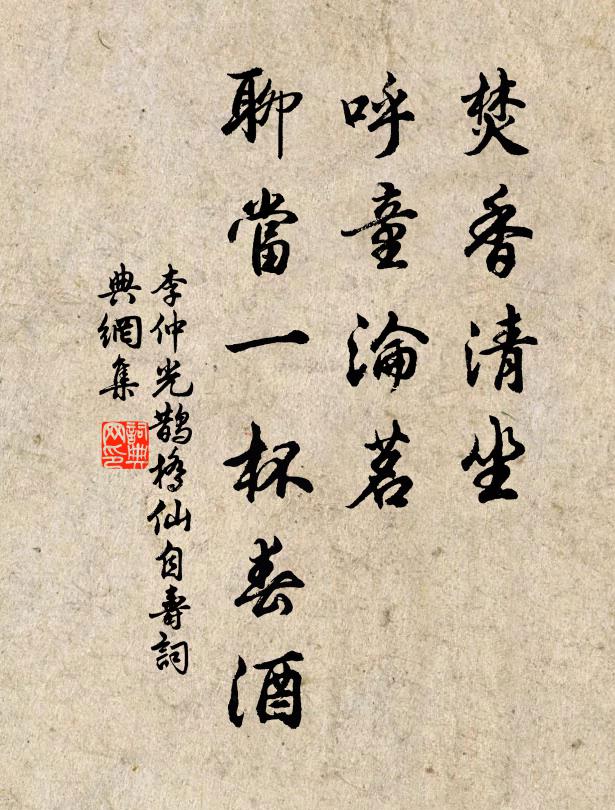 焚香清坐
呼童瀹茗
聊當一杯春酒
李仲光鵲橋仙自壽詞
典網集
詞典网印